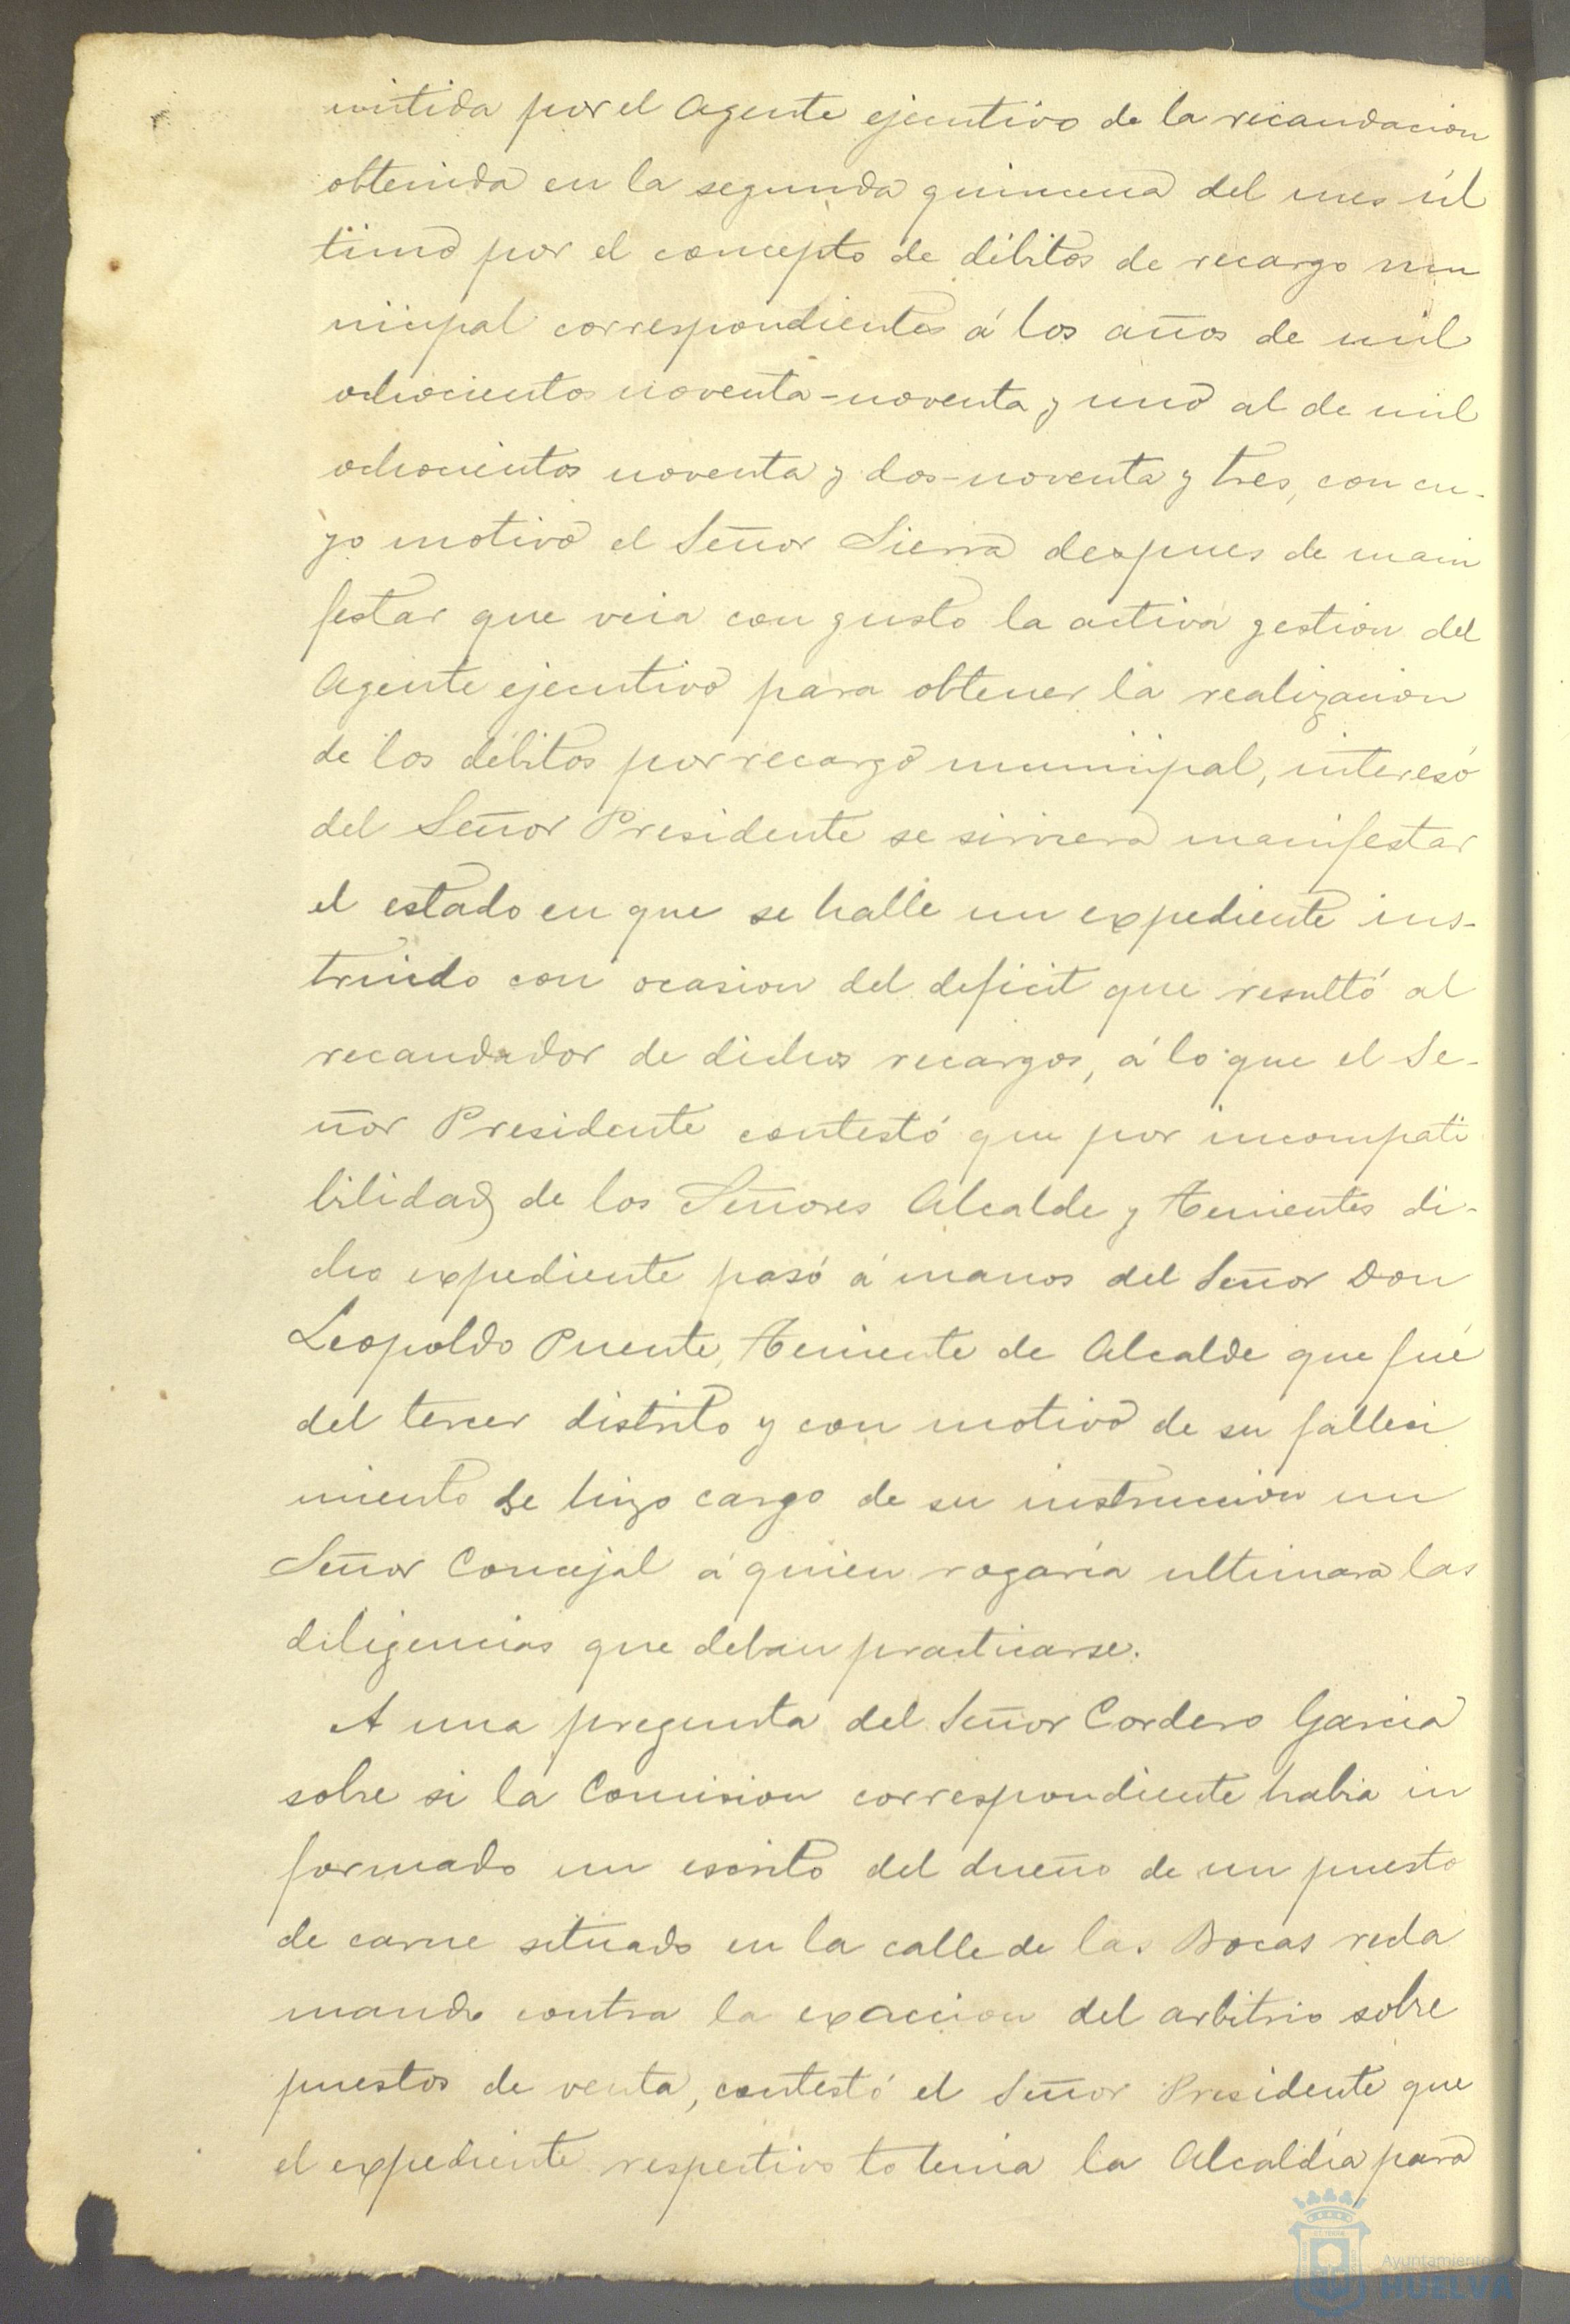 mitida por el Agente ejecutivo de la recaudacion
obtenida en la segunda quincena del mes úl
timo por el concepto de débitos de recargo mu
nicipal correspondientes á los años de mil
ochocientos noventa-noventa y uno al de mil
ochocientos noventa y dos-noventa y tres, con cu-
yo motivo el Señor Sierra despues de mani
festar que veia con gusto la activa gestion del
Agente ejecutivo para obtener la realizacion
de los débitos por recargo municipal, interesó
del Señor Presidente se sirviera manifestar
el estado en que se halle un expediente ins-
truido con ocasion del deficit que resultó al
recaudador de dichos recargos, á lo que el Se-
ñor Presidente contestó que por incompati
bilidad de los Señores Alcalde y Tenientes di-
cho expediente pasó á manos del Señor Don
Leopoldo Puente, Teniente de Alcalde que fué
del tercer distrito y con motivo de su falleci
miento se hizo cargo de su instruccion un
Señor Concejal á quien rogaría ultimara las
diligencias que deban practicarse.
A una pregunta del Señor Cordero Garcia
sobre si la Comision correspondiente habia in
formado un escrito del dueño de un puesto
de carne situado en la calle de las Bocas recla
mando contra la exaccion del arbitrio sobre
puestos de venta, contestó el Señor Presidente que
el expediente respectivo lo tenia la Alcaldía para
Ayuntamiento
HUELVA